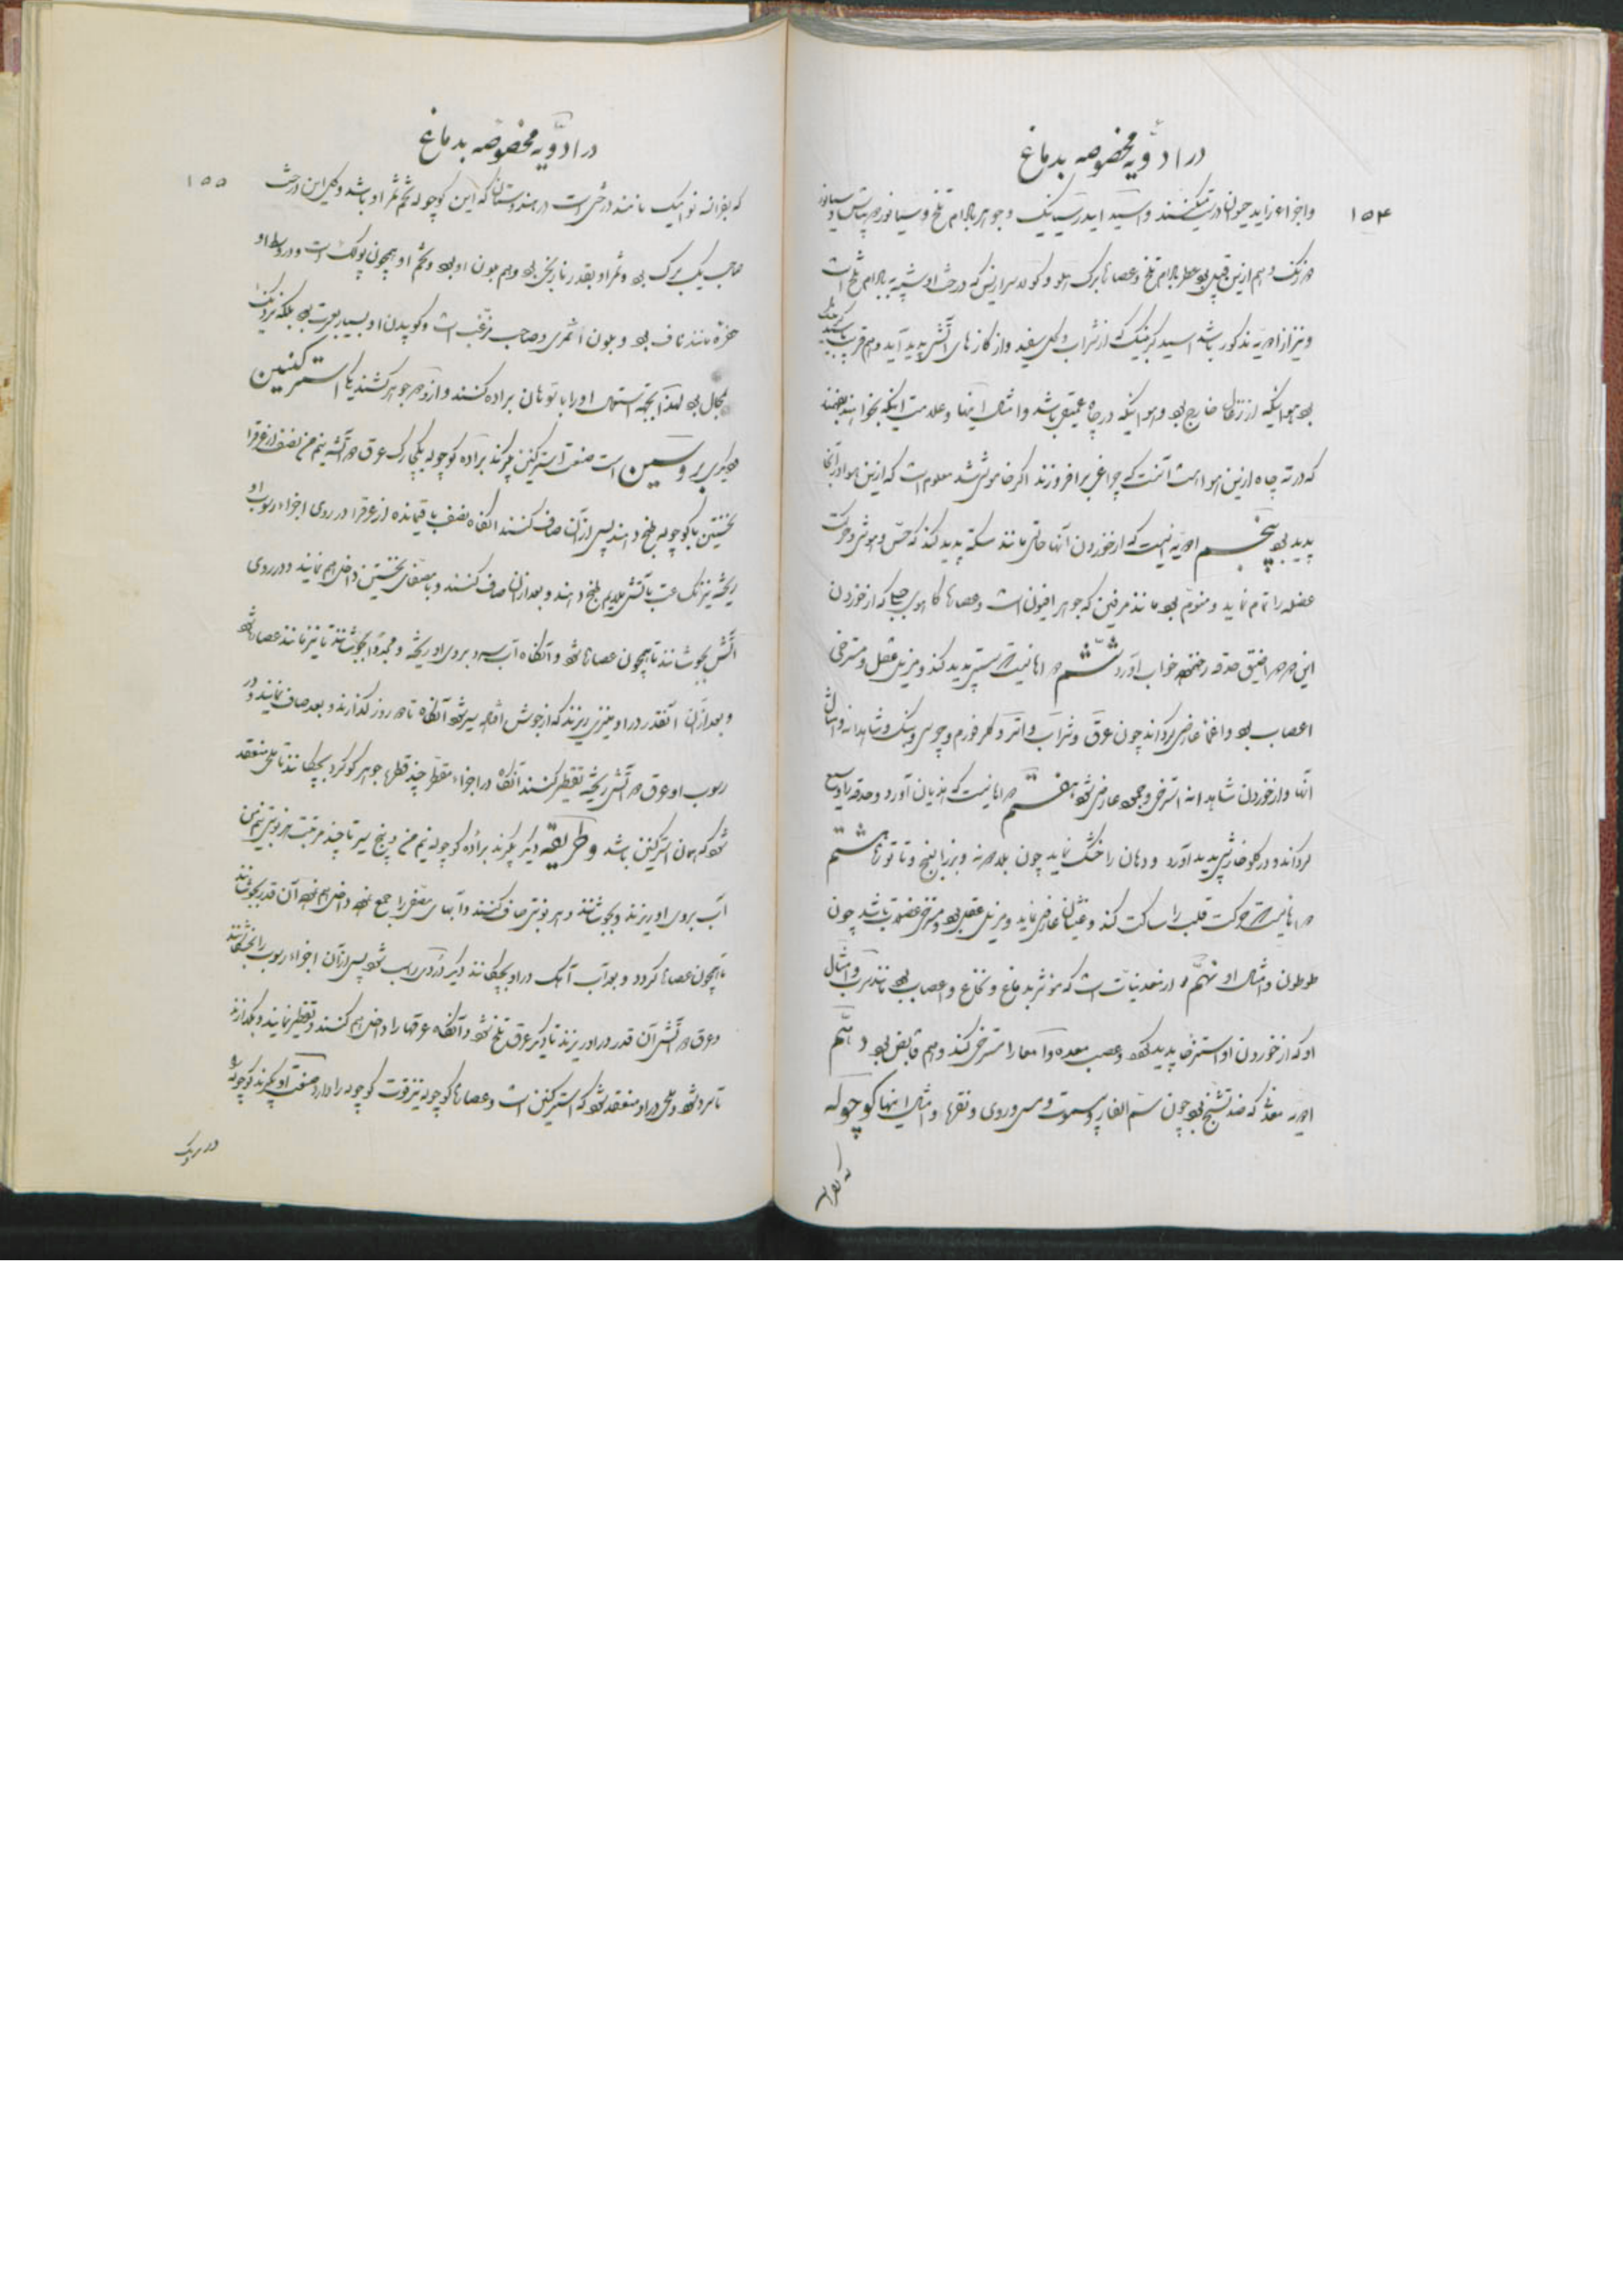 در ادویه مخصوصه بدماغ
۱۵۴
واجزاء زاید حیوانات و اسید ایدرسیانیک و جوهر بادام تلخ و سیانور
و هم ازین قبیل بود عطر بادام تلخ و عصارهٔ برک هلو که درخت او شبیه بادام تلخ است
و نیز از ادویه مذکور باشد اسید کربنیک که از شراب و کل سفید و از کازهای آتش پدید آید و هم قریب
بود هوائیکه از زغال خارج بود و هوائیکه در چاه عمیق باشد و امثال اینها و علامت اینکه بخواهند بفهمند
که در ته چاه ازین هوا هست آنست که چراغی برافروزند اکر خاموش شد معلوم است که ازین هوا در آنجا
پدید بود پنجم ادویه ایست که از خوردن آنها حالتی مانند سکته پدید کند که حس و هوش و حرکت
عضله را تمام نماید و منوم بود مانند مرفین که جوهر افیون است و عصارهٔ کاهوی که از خوردن
این ضیق حدقه خواب آورد ششم دواهائیست که مستی پدید کند و مزیل عقل و مسترخی
اعصاب بود و اغما عارض کرداند چون عرق و شراب و اتر و کلرفورم و چرس و بنک و شاهدانه و امثال
آنها و از خوردن شاهدانه استرخی عارض شود هفتم دواهائیست که هذیان آورد و حدقه را وسیع
کرداند و در کلو خارش پدید آورد و دهان را خشک نماید چون بلادونه و بزر البنج و تاتوره هشتم
دواهائیست که حرکت قلب را ساکت کند و غثیان عارض نماید و مزیل عقل بود و مرخی عضلات باشد چون
طوطون و امثال او نهم از معدنیات است که مؤثر بدماغ و نخاع و اعصاب بود مانند سرب و امثال
او که از خوردن او استرخا پدید کردد و عصب معده و امعا را مسترخی کند و هم قابض بود دهم
ادویه معدنی که ضد تشنج بود چون سم الفار و بیسموت و مس و روی و نقره و امثال اینها کوچوله
که بفرانسه
در ادویه مخصوصه بدماغ
۱۵۵
که بفرانسه نوامیک نامند درختی است در هندوستان که این کوچوله تخم ثمر او باشد و کل این درخت
صاحب یک برک بود و ثمر او بقدر نارنجی بود و هم بلون او بود و تخم او همچون پولک است و در وسط او
حفرهٔ مانند ناف بود و بلون خاکستری و صاحب زغب است و کوبیدن او بسیار بصعوبت بود بلکه نزدیک
بمحال بود لهذا بجهة استعمال او را با سوهان براده کنند و از او دو جوهر کشند یکی استرکنین
دیکری بروسین است صنعت استرکنین بکیرند براده کوچوله یکچارک عرق دو آتشه نیم من نصف از عرق را
نخستین با کوچوله طبخ دهند پس از آن صاف کنند آنکاه نصف باقیمانده از عرق را در روی اجزاء رسوب او
ریخته نیز یکساعت با آتش ملایم طبخ دهند و بعد از آن صاف کنند و با مصفای نخستین داخل هم نمایند و در روی
آتش بجوشانند تا همچون عصاره شود و آنکاه آب سرد بروی او ریخته و مجدداً بجوشانند تا نیز مانند عصاره شود
و بعد از آن آنقدر در او منیزی ریزند که از جوش افتد آنکاه تا دو روز کذارند و بعد صاف نمایند و در
رسوب او عرق دو آتش ریخته تقطیر کنند آنکاه در اجزاء مقطر چند قطره جوهر کوکرد بچکانند تا ملحی منعقد
شود که همان استرکنین باشد و طریقه دیکر بکیرند براده کوچوله نیم من و پنج سیر تا چند مرتبه هر نوبتی نیم من
آب بروی او ریزند و بجوشانند و هر نوبتی صاف کنند و آبهای مصفی را جمع نموده داخل هم نموده آن قدر بجوشانند
تا همچون عصاره کردد و بعد آب آهک در او بچکانند دیکر دردی راسب شود پس از آن اجزاء رسوب را بخشکانند
و عرق دو آتش آن قدر در او ریزند تا دیکر عرق تلخ نشود و آنکاه عرقها را داخل هم کنند و تقطیر نمایند و بکذارند
تا سرد شود و ملحی در او منعقد شود که استرکنین است و عصارهٔ کوچوله نیز قوت کوچوله را دارد صنعت او بکیرند کوچوله
در یک